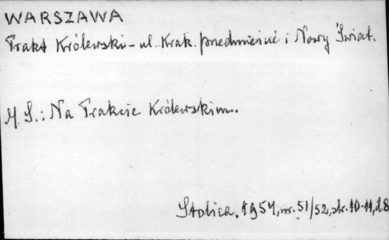 WARSZAWA
Trakt Królewski - ul. Krak. Przedmieście i Nowy Świat.
M. S.: Na Trakcie Królewskim.
Stolica. 1954, nr. 51/52, str. 10-11, il. 8